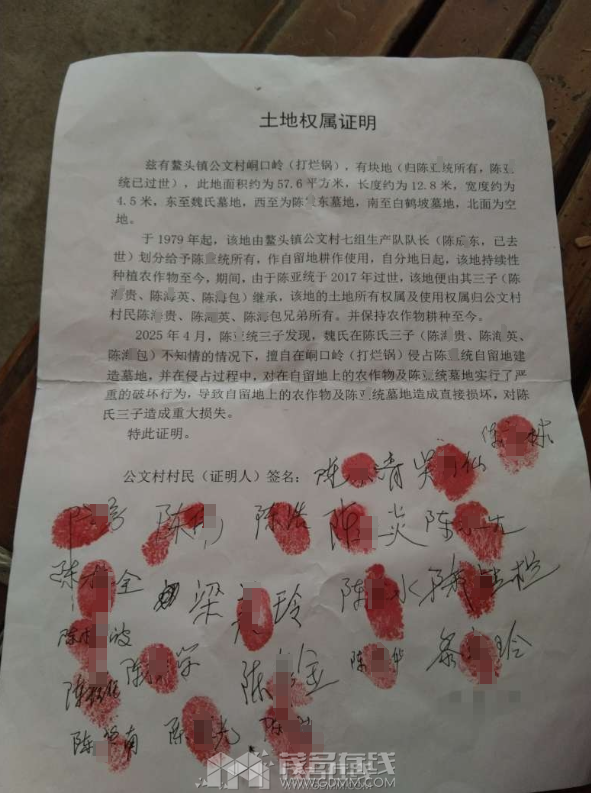 土地权属证明
兹有鳌头镇公文村峒口岭（打烂锅），有块地（归陈亚统所有，陈亚
统已过世），此地面积约为57.6平方米，长度约为12.8米，宽度约为
4.5米，东至魏氏墓地，西至为陈东墓地，南至白鹤坡墓地，北面为空
地。
于1979年起，该地由鳌头镇公文村七组生产队队长（陈东，已去
世）划分给予陈统所有，作自留地耕作使用，自分地日起，该地持续性
种植农作物至今，期间，由于陈亚统于2017年过世，该地便由其三子（陈
海贵、陈海英、陈海包）继承，该地的土地所有权属及使用权属归公文村
村民陈海贵、陈海英、陈海包兄弟所有。并保持农作物耕种至今。
2025年4月，陈亚统三子发现，魏氏在陈氏三子（陈海贵、陈海英、
陈海包）不知情的情况下，擅自在峒口岭（打烂锅）侵占陈统自留地建
造墓地，并在侵占过程中，对在自留地上的农作物及陈亚统墓地实行了严
重的破坏行为，导致自留地上的农作物及陈亚统墓地造成直接损坏，对陈
氏三子造成重大损失。
特此证明。
公文村村民（证明人）签名：陈青 吴仙 陈
陈 陈浩 陈炎 陈
陈全 梁玲 陈水
陈波 陈 陈金 陈
陈
陈南 陈光 陈
茂名在线
WWW.GDMM.COM